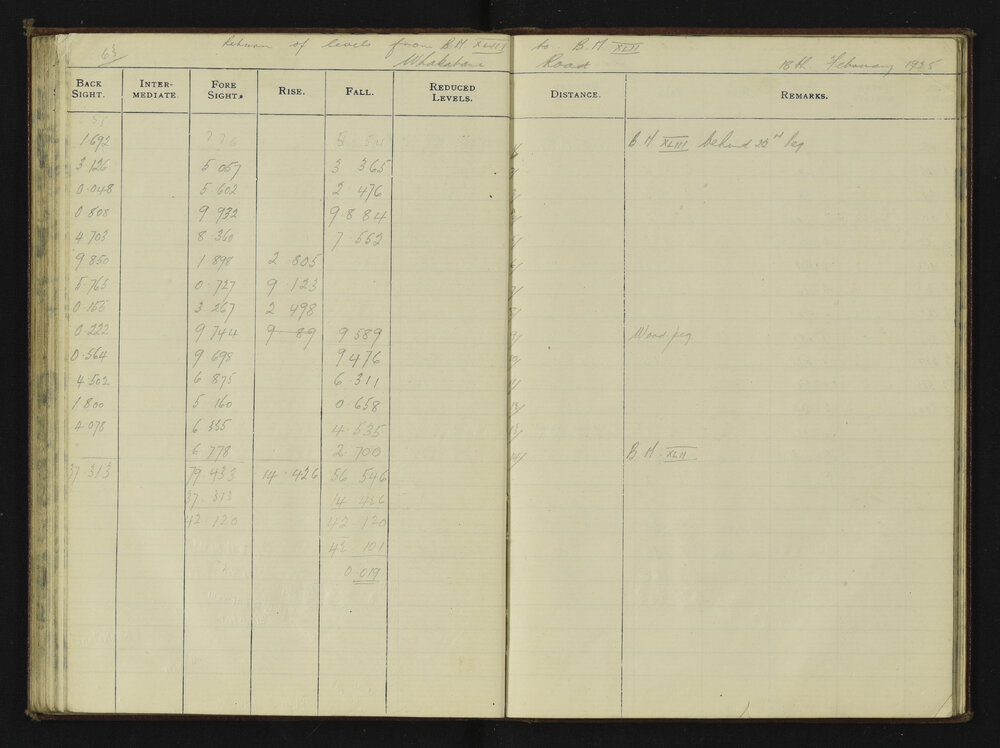 63
Return of levels from B.M XLIII to B.M XLII
Whakatane Road 18th February 1925
BACK SIGHT. INTER-MEDIATE. FORE SIGHT. RISE. FALL. REDUCED LEVELS. DISTANCE. REMARKS.
1.692 B.M XLIII behind 22nd Peg
3 126 5 057 3 365
0.048 5.602 2 476
0.808 9 932 9.884
4 703 8.360 7.552
9 850 1 898 2 805
5.765 0.727 9 123
0.155 3 267 2 498
0.222 9 744 9 89 9 589 Wood peg
0.564 9 698 9 476
4.502 6 875 6.311
1 800 5 160 0.658
4.078 6 335 4.535
6 778 2.700 B.M. XLII
37.313 79 433 14.426 56 546
37.313 14 426
42.120 42 120
42 101
0.019